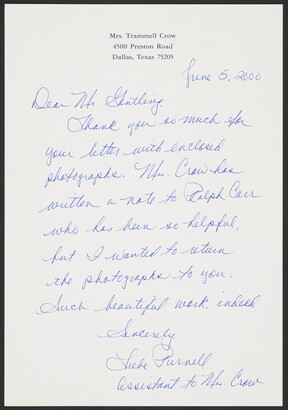 Mrs. Trammell Crow
4500 Preston Road
Dallas, Texas 75205
June 5, 2000
Dear Mr. Gentling
Thank you so much for
your letter with enclosed
photographs. Mrs. Crow has
written a note to Ralph Carr
who has been so helpful,
but I wanted to return
the photographs to you.
Such beautiful work indeed
Sincerely
Purnell
Assistant to Mrs. Crow